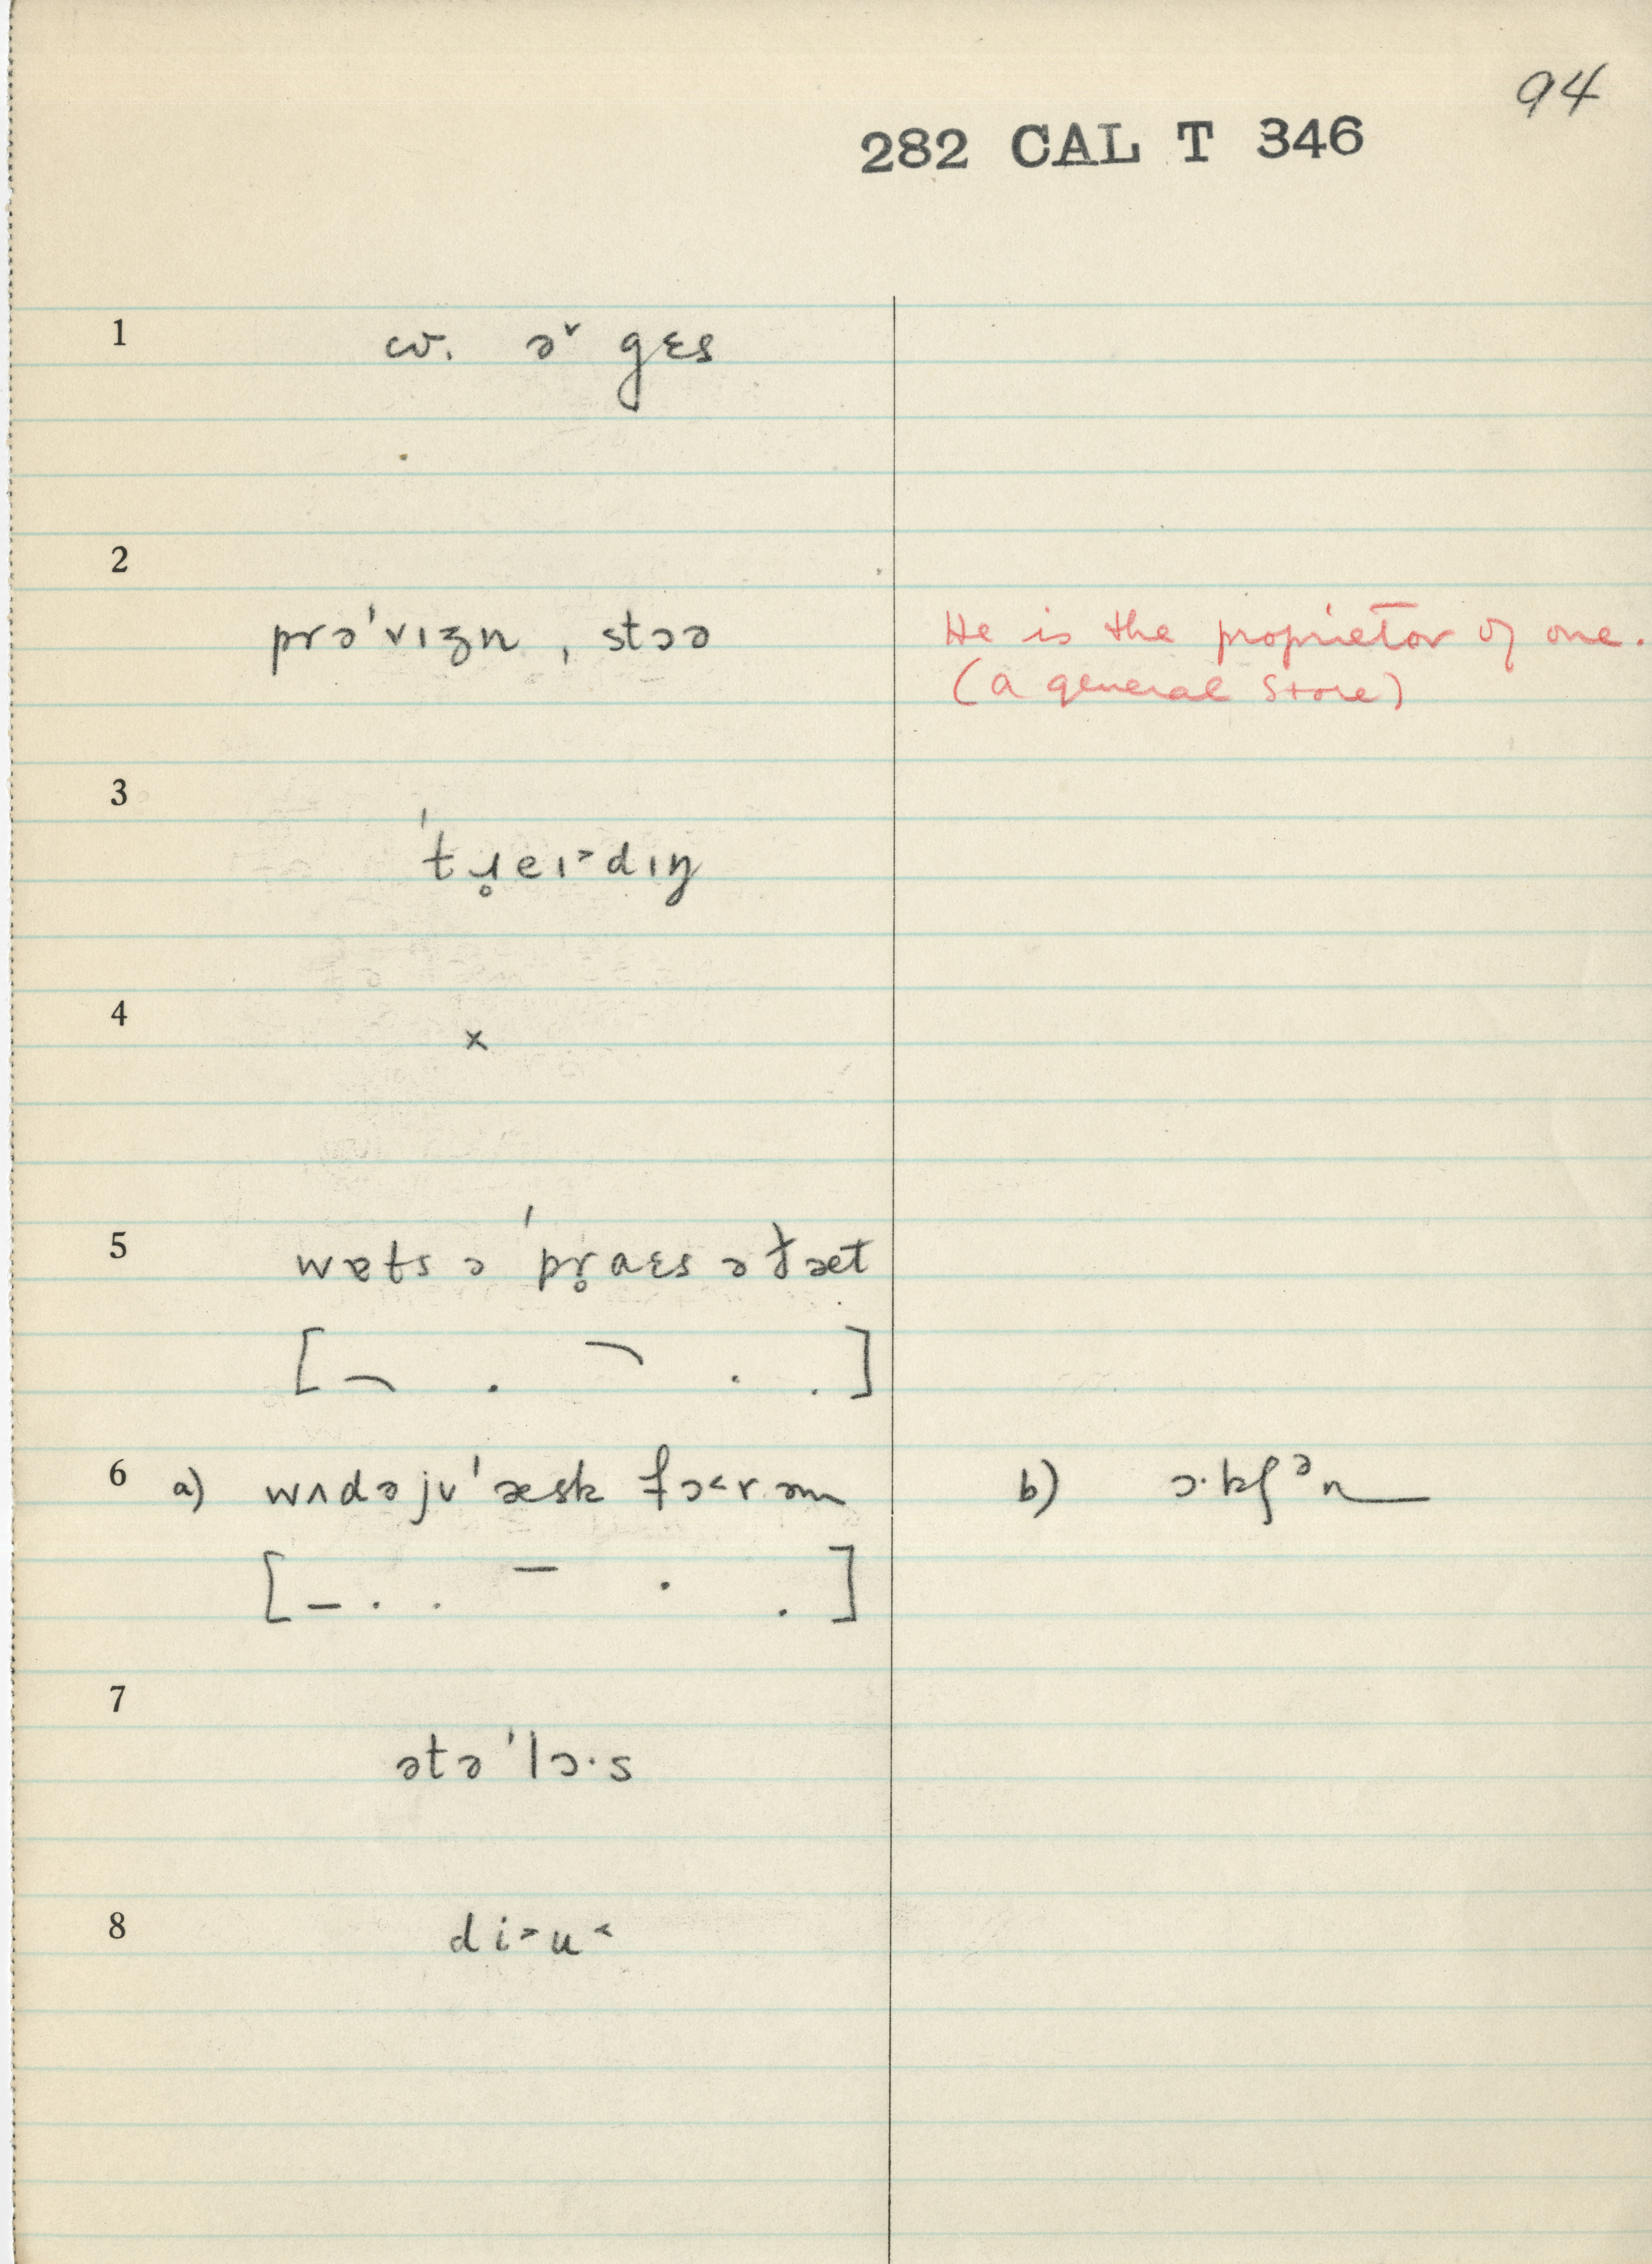 94
282 CAL T 346
1 cv. ə˅ gɛs
2
prə'vɪʒn ˌstɔə He is the proprietor of one.
(a general store)
3
'tɹ̥eɪ˃dɪŋ
4
x
5 wɐts ə 'pr̥aɛs əɫæt
[ . . . ]
6 a) wʌdəjʊ'æsk fɔ˂r əm b) ɔ·kʃᵊn
[ – . . – . . ]
7
ətə'lɔ·s
8 di˃u˂